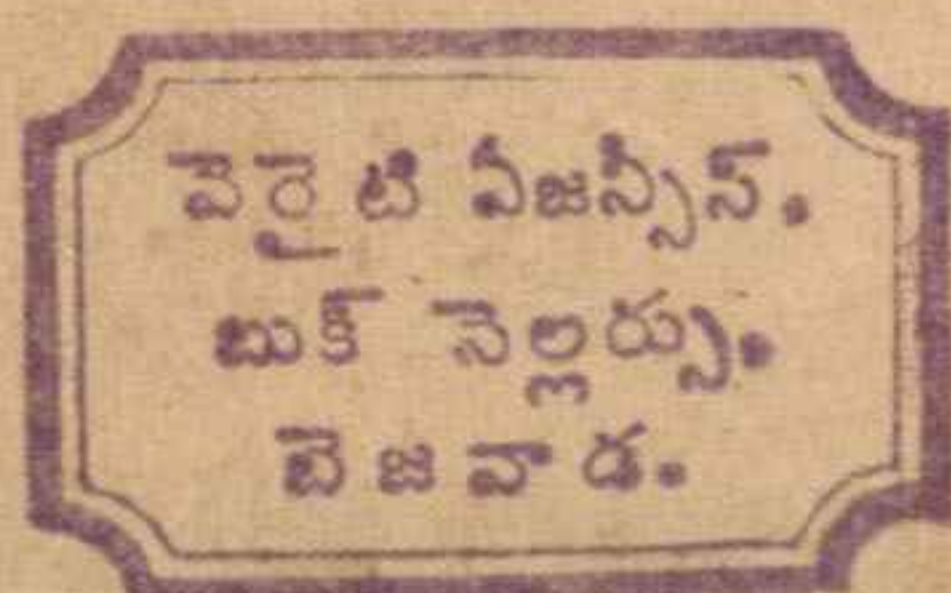 వెరైటి ఏజన్సీస్.
బుక్ సెల్లర్సు.
బెజవాడ.